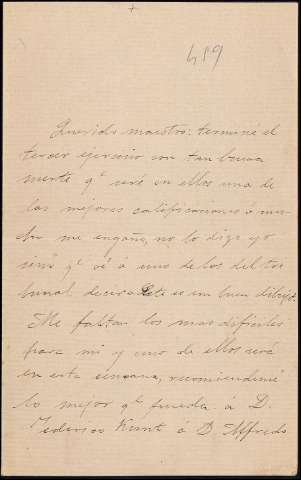 459
Querido maestro: terminé el
tercer ejercicio con tan buena
suerte qe seré en ellos una de
las mejores calificaciones ó mu-
cho me engaño, no lo digo yo
sinó qe oí á uno de los del tri
bunal decir este es un buen dibujo.
Me faltan los mas dificiles
para mi y uno de ellos será
en esta semana, recomiendeme
lo mejor qe pueda á D.
Federico Kunt á D. Alfredo